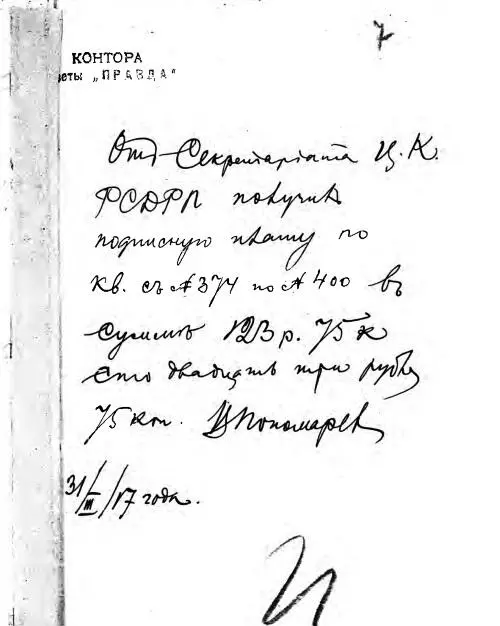 7
КОНТОРА
еты „ПРАВДА"
Отъ Секретаріата Ц.К.
РСДРП получилъ
подписную плату по
кв. съ № 374 по № 400 въ
суммѣ 123 р. 75 к
сто двадцать три рубля
75 коп. Пономарев
31/III/17 года.